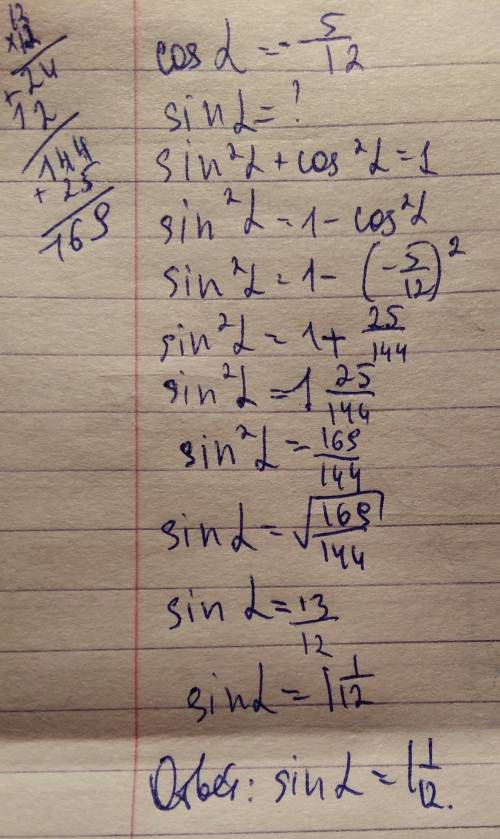 12
×12
24
+
12
144
+25
169
cos α = -5/12
sin α = ?
sin²α + cos²α = 1
sin²α = 1 - cos²α
sin²α = 1 - (-5/12)²
sin²α = 1 + 25/144
sin²α = 1 25/144
sin²α = 169/144
sin α = √169/144
sin α = 13/12
sin α = 1 1/12
Ответ: sin α = 1 1/12.